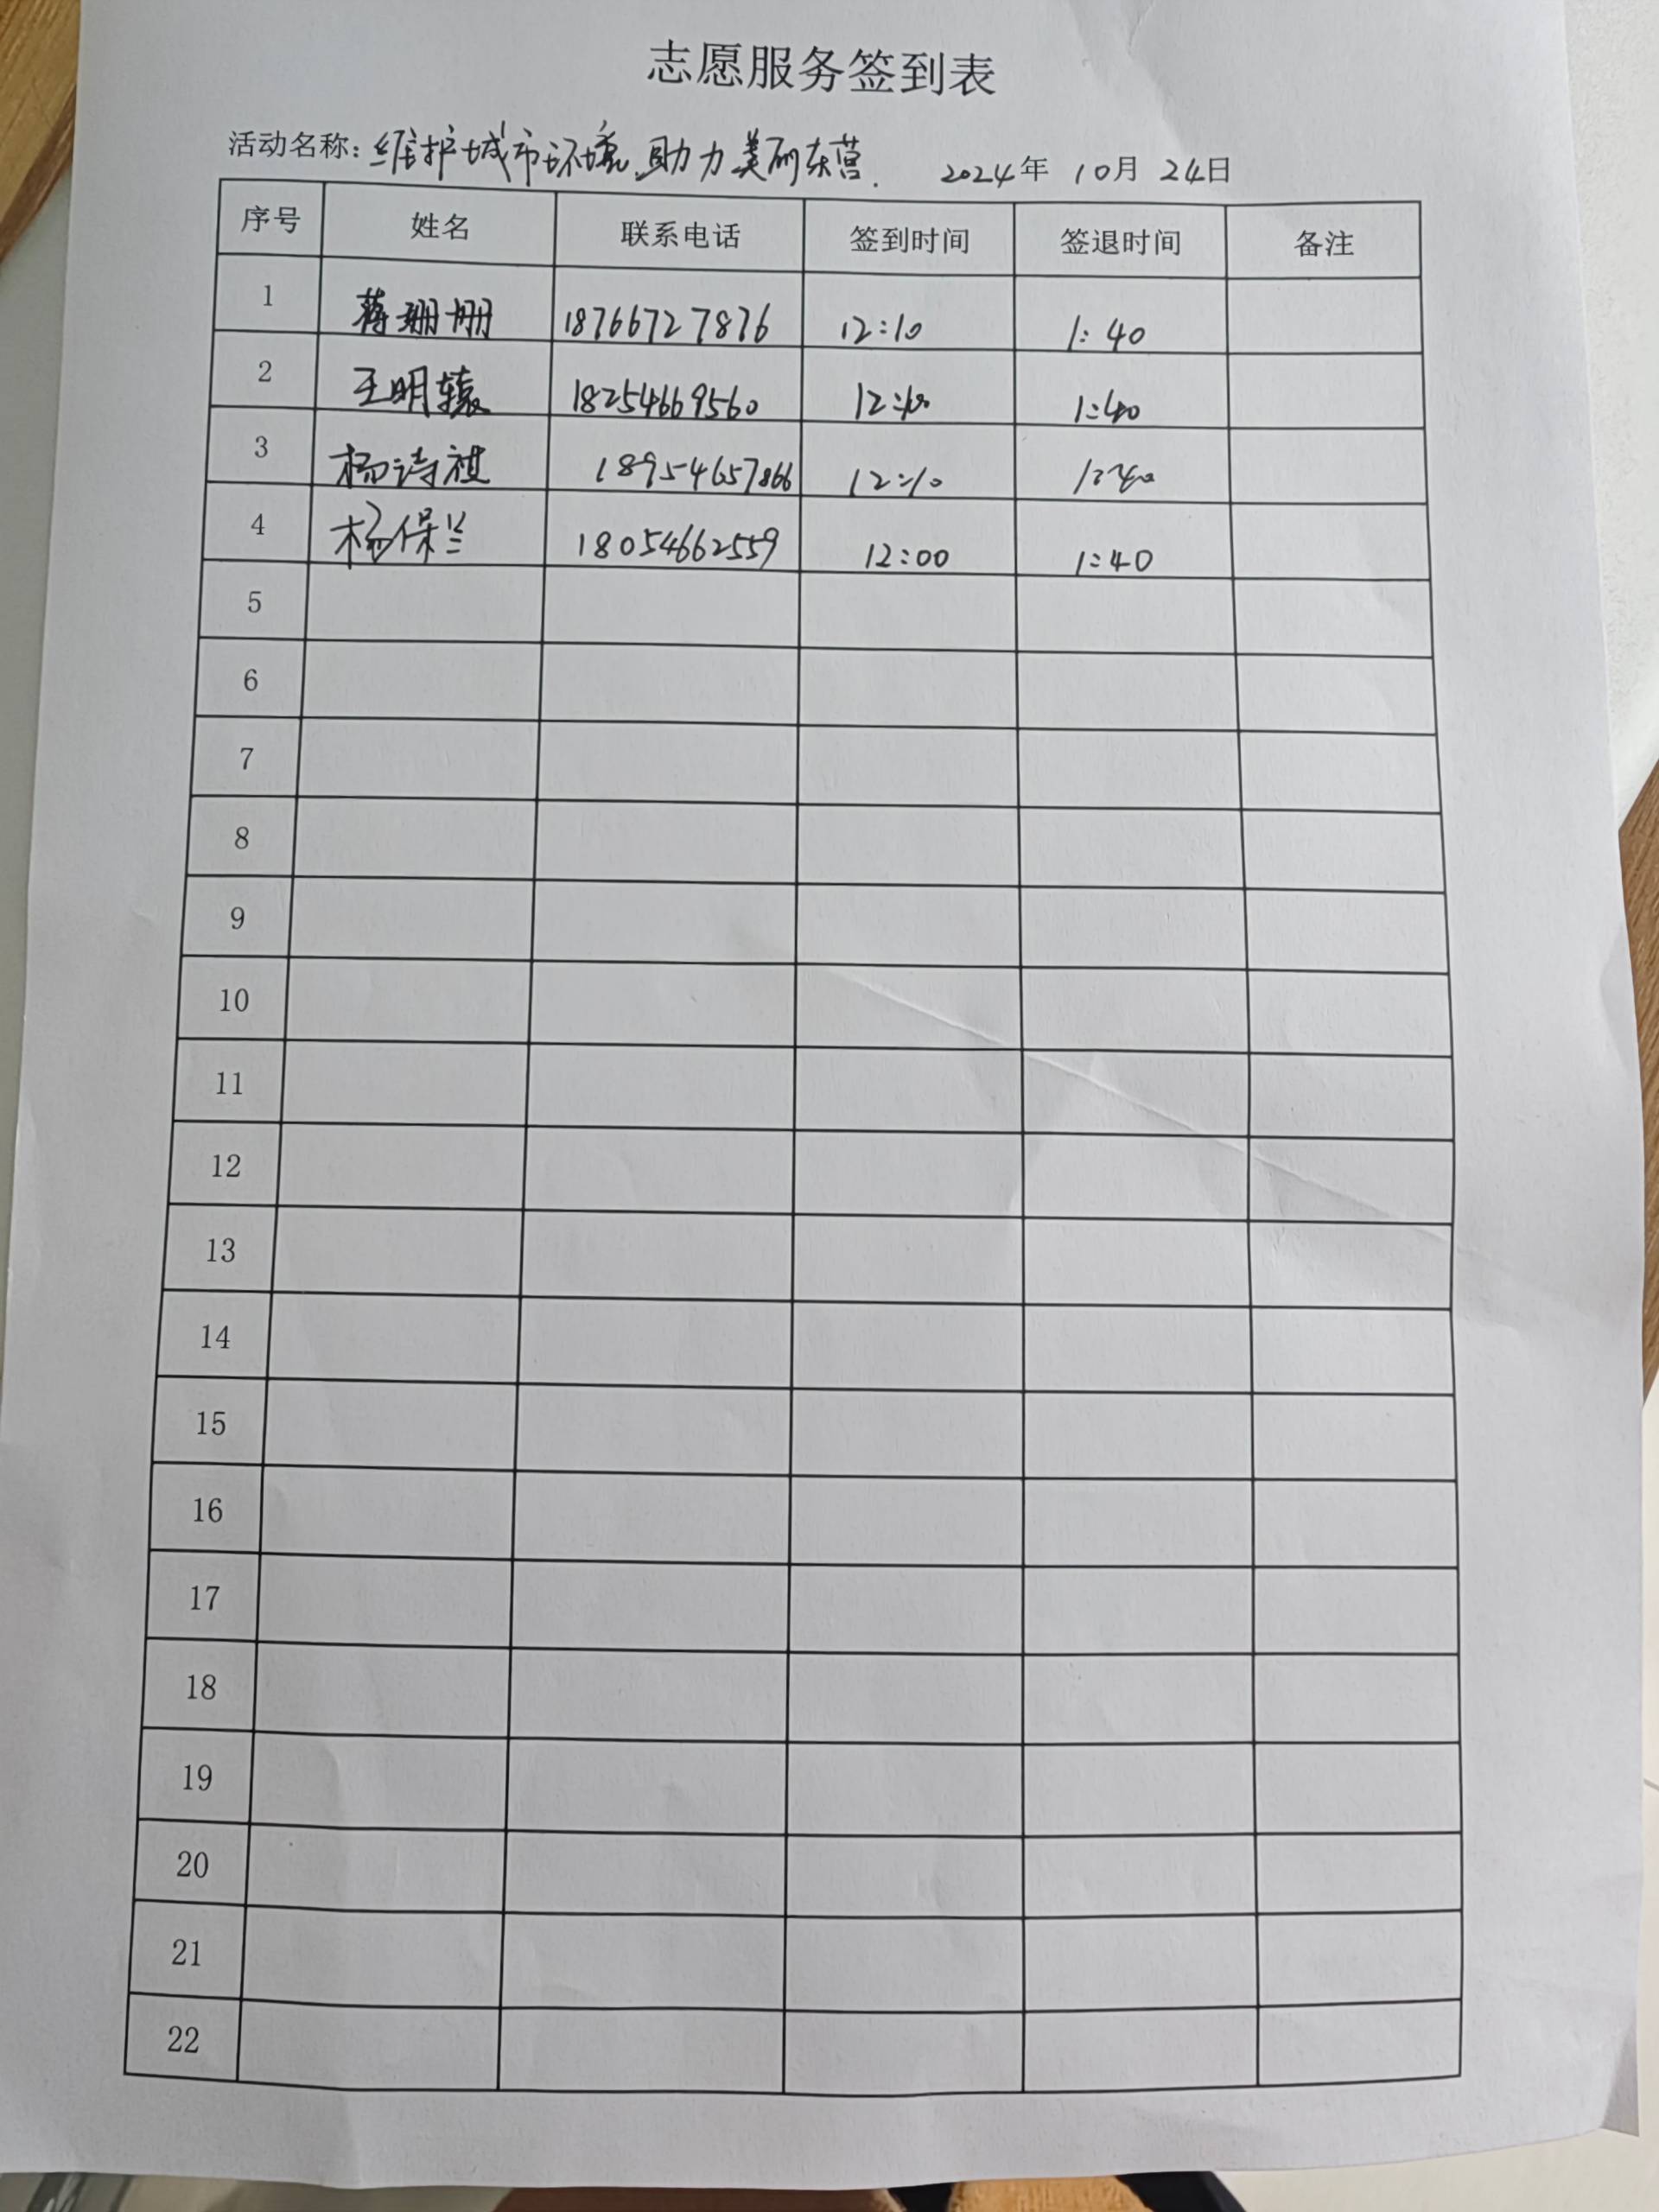 志愿服务签到表
活动名称：维护城市环境,助力美丽东营. 2024年 10月 24日
序号 姓名 联系电话 签到时间 签退时间 备注
1 蒋珊珊 18766727876 12:10 1:40
2 王明辕 18254669560 12:10 1:40
3 杨诗祺 18954657866 12:10 1:40
4 杨保兰 18054662559 12:00 1:40
5
6
7
8
9
10
11
12
13
14
15
16
17
18
19
20
21
22